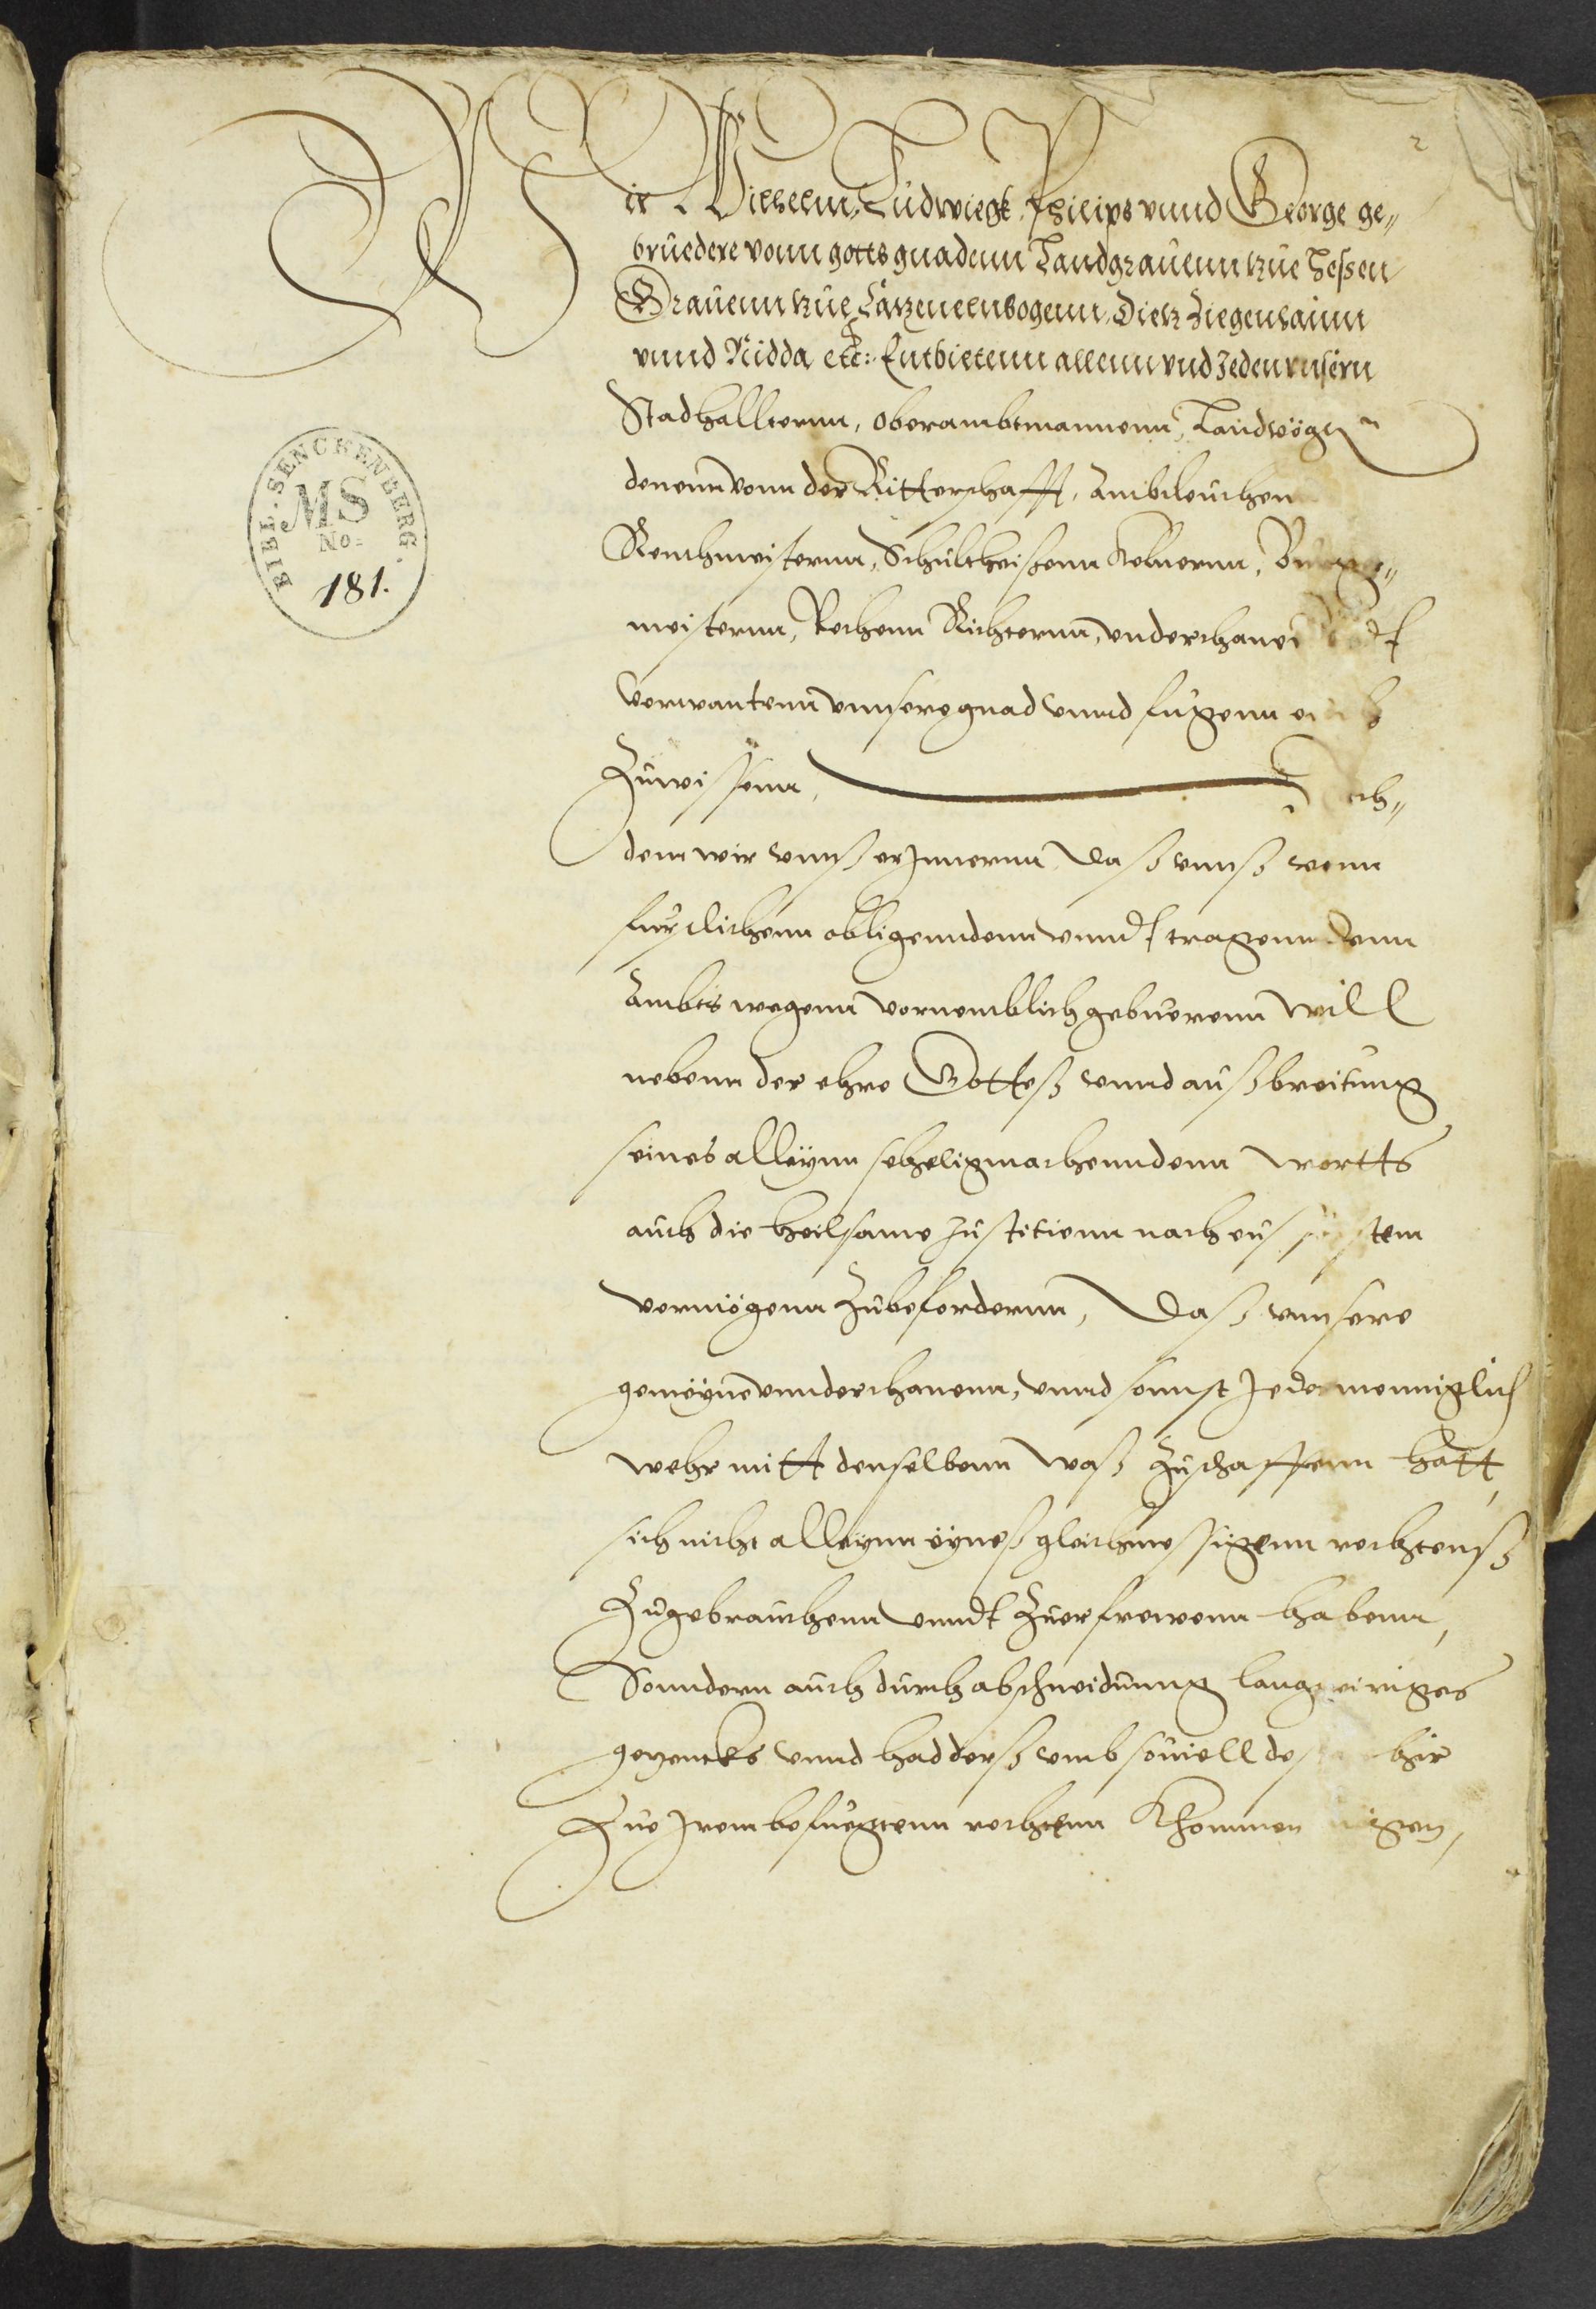 2
Wir Wilhelm, Ludwiegk Philips vnnd George ge„
bruedere vonn gotts gnadenn Landgrauenn zue Hessen
Grauenn zue Catzenelnbogenn, Dietz Ziegenhainn
vnnd Nidda etc: Entbietenn allenn vnd Jeden vnsern
Stadhallternn, Oberambtmannenn, Landvögen
denenn vonn der Ritterschafft, Ambtleuthen
Rentmeisternn, Schultheissenn Kelnernn, Burge„
meisternn, Rethenn Richternn, vnderthanen
verwantenn vnnsere gnad vnnd fugenn euch
Zuwissenn, Nach„
dem wir vnnß erJnnernn, daß vnnß vonn
furstlichenn obligenndenn vnndt tragenndenn
Ambts wegenn vornemblich gebuerenn will
nebenn der ehre Gotteß vnnd außbreitung
seines alleynn seheligmachenndenn wortts
auch die heilsame Justitienn nach eusserstem
vermögenn Zubefordernn, Daß vnnsere
gemeyne vnnderthanenn, vnnd sonnst Jedermenniglich
wehr mitt denselbenn waß Zuschaffenn hatt,
sich nicht alleynn eyneß gleichmessigenn rechtenß
Zugebrauchenn vnndt Zuerfrewenn habenn,
Sonndern auch durch abschneidunng langweiriges
getzencks vnnd hadderß vmb souiell
Zue Jrem befuegtenn rechtenn Khommen mögen,
BIBL. SENCKENBERG.
MS
No:
181.